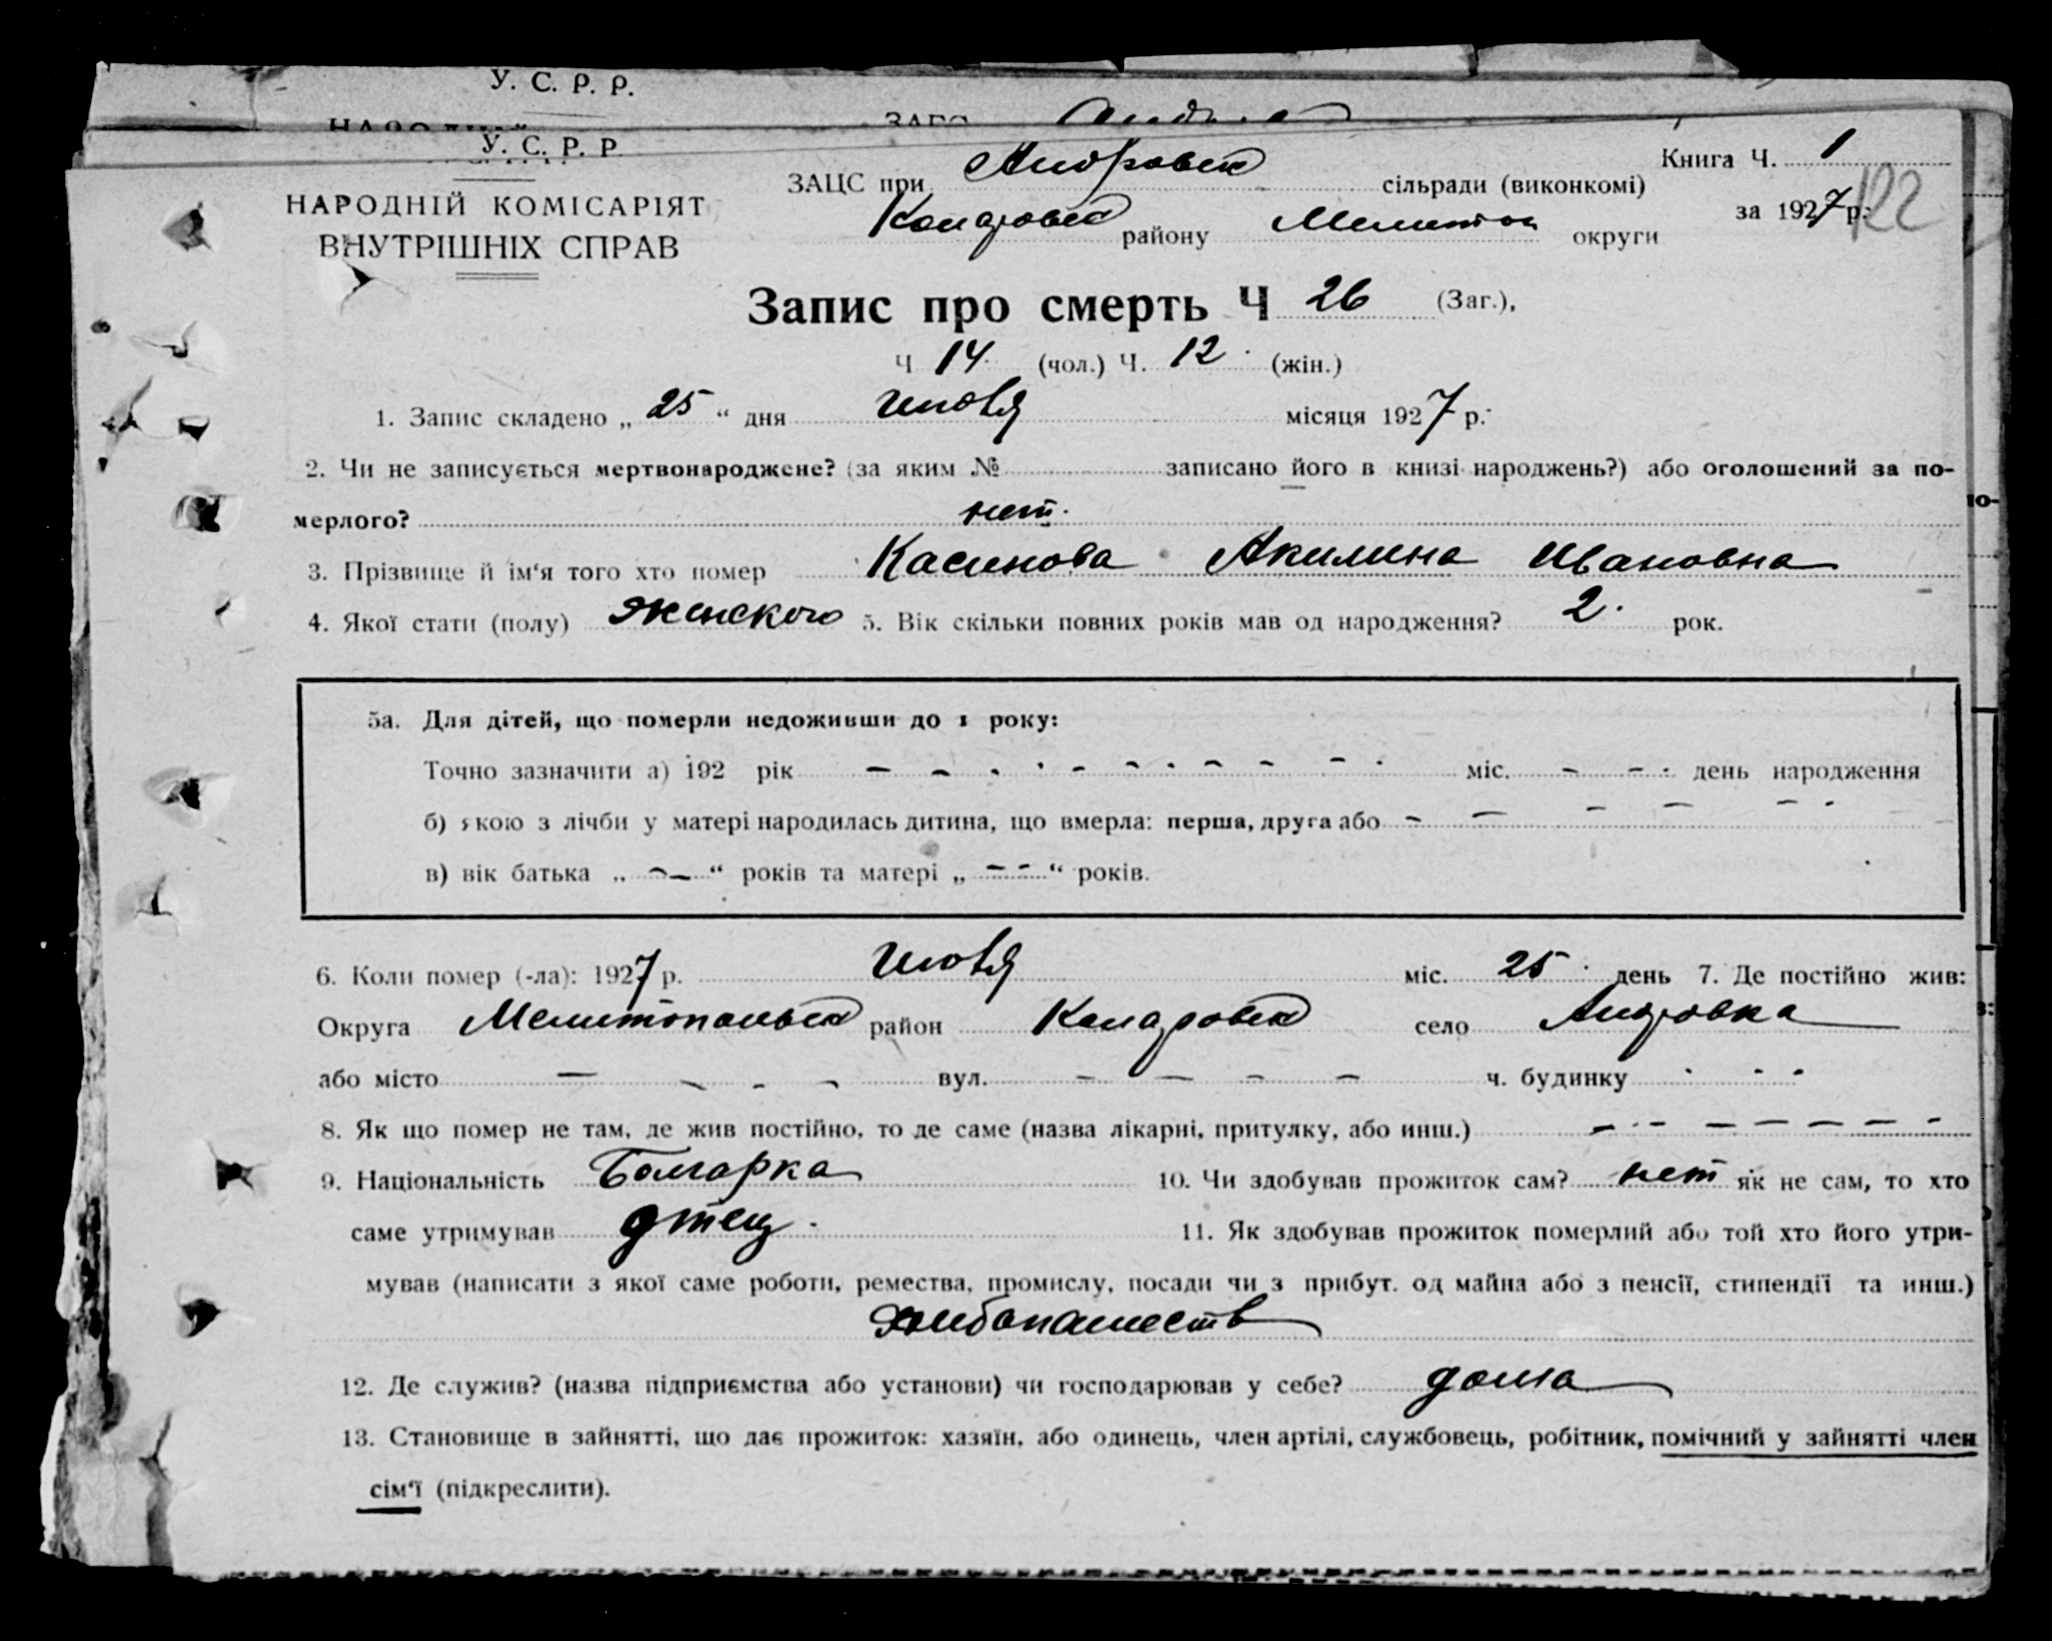 У. С. Р. Р.
У. С. Р. Р
Книга Ч. 1
ЗАЦС при Андровск сільради (виконкомі)
НАРОДНІЙ КОМІСАРІЯТ
за 1927 р. 122
ВНУТРІШНІХ СПРАВ
району Мелитоп округи
Запис про смерть Ч 26 (Заг.),
Ч 14 (чол.) Ч. 12 (жін.)
1. Запис складено „ 25 “ дня июля місяця 1927 р.
2. Чи не записується мертвонароджене? (за яким № записано його в книзі народжень?) або оголошений за по-
мерлого? нет.
3. Прізвище й ім‘я того хто помер Касинова Акилина Ивановна
4. Якої стати (полу) женского 5. Вік скільки повних років мав од народження? 2. рок.
5а. Для дітей, що померли недоживши до 1 року:
Точно зазначити а) 192 рік міс. день народження
б) якою з лічби у матері народилась дитина, що вмерла: перша, друга або
в) вік батька „ “ років та матері „ “ років.
6. Коли помер (-ла): 1927 р. июля міс. 25 день 7. Де постійно жив:
Округа Мелитопольск район село Андровка
або місто вул. ч. будинку
8. Як що помер не там, де жив постійно, то де саме (назва лікарні, притулку, або инш.)
9. Національність Болгарка 10. Чи здобував прожиток сам? нет як не сам, то хто
саме утримував отец. 11. Як здобував прожиток померлий або той хто його утри-
мував (написати з якої саме роботи, ремества, промислу, посади чи з прибут. од майна або з пенсії, стипендії та инш.)
хлибопашеств
12. Де служив? (назва підприємства або установи) чи господарював у себе? дома
13. Становище в зайнятті, що дає прожиток: хазяїн, або одинець, член артілі, службовець, робітник, помічний у зайнятті член
сім‘ї (підкреслити).